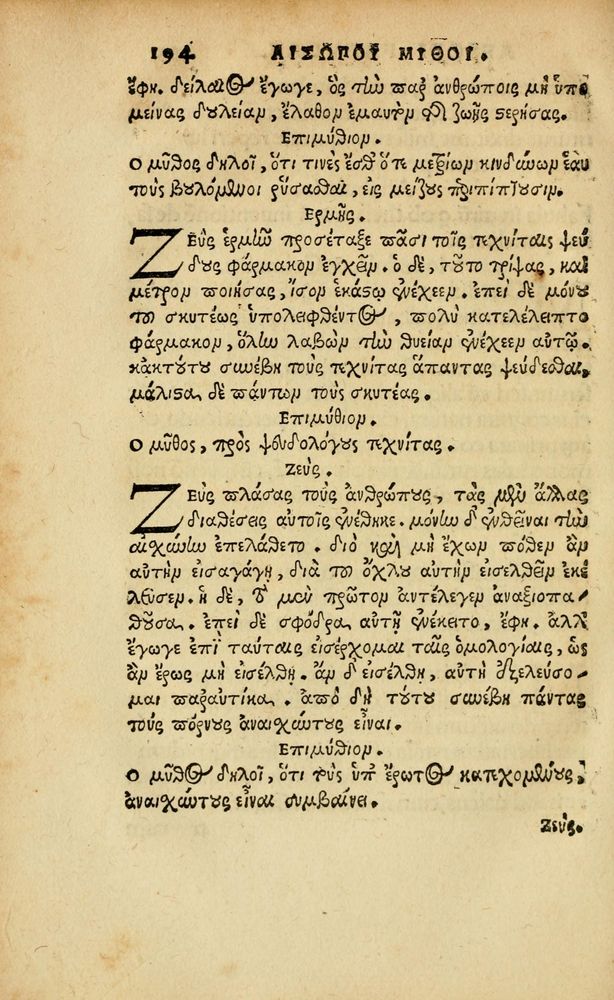 194 ΑΙΣΩΠΟΥ ΜΙΘΟΙ.
ἔφη. δείλαιος ἔγωγε, ὃς τὴν παρ᾽ ἀνθρώποις μὴ ὑπο
μείνας δουλείαν, ἔλαθον ἐμαυτὸν καὶ ζωῆς στερήσας.
Επιμύθιον.
Ο μῦθος δηλοῖ, ὅτι τινὲς ἔσθ᾽ ὅτε μετρίων κινδύνων ἑαυ
τοὺς βουλόμενοι ῥύσασθαι, εἰς μείζους περιπίπτουσιν.
Ερμῆς.
ΖΕὺς ἑρμῇ προσέταξε πᾶσι τοῖς τεχνίταις ψεύ
δους φάρμακον ἐγχεῖν. ὁ δὲ, τοῦτο τρίψας, καὶ
μέτρον ποιήσας, ἴσον ἑκάστῳ ἐνέχεεν. ἐπεὶ δὲ μόνου
τοῦ σκυτέως ὑπολειφθέντος, πολὺ κατελέλειπτο
φάρμακον, ὅλην λαβὼν τὴν θυείαν ἐνέχεεν αὐτῷ.
κἀκ τούτου συνέβη τοὺς τεχνίτας ἅπαντας ψεύδεσθαι,
μάλιστα δὲ πάντων τοὺς σκυτέας.
Επιμύθιον.
Ο μῦθος, πρὸς ψευδολόγους τεχνίτας.
Ζεύς.
ΖΕὺς πλάσας τοὺς ἀνθρώπους, τὰς μὲν ἄλλας
διαθέσεις αὐτοῖς ἐνέθηκε. μόνην δ᾽ ἐνθεῖναι τὴν
αἰσχύνην ἐπελάθετο. διὸ καὶ μὴ ἔχων πόθεν ἂν
αὐτὴν εἰσαγάγῃ, διὰ τοῦ ὄχλου αὐτὴν εἰσελθεῖν ἐκέ
λευσεν. ἡ δὲ, τὸ μὲν πρῶτον ἀντέλεγεν ἀναξιοπα-
θοῦσα. ἐπεὶ δὲ σφόδρα αὐτῇ ἐνέκειτο, ἔφη. ἀλλ᾽
ἔγωγε ἐπὶ ταύταις εἰσέρχομαι ταῖς ὁμολογίαις, ὡς
ἂν ἔρως μὴ εἰσέλθῃ. ἂν δ᾽ εἰσέλθῃ, αὐτὴ ἐξελεύσο-
μαι παραυτίκα. ἀπὸ δὴ τούτου συνέβη πάντας
τοὺς πόρνους ἀναισχύντους εἶναι.
Επιμύθιον.
Ο μῦθος δηλοῖ, ὅτι τοὺς ὑπ᾽ ἔρωτος κατεχομένους,
ἀναισχύντους εἶναι συμβαίνει.
Ζεύς.